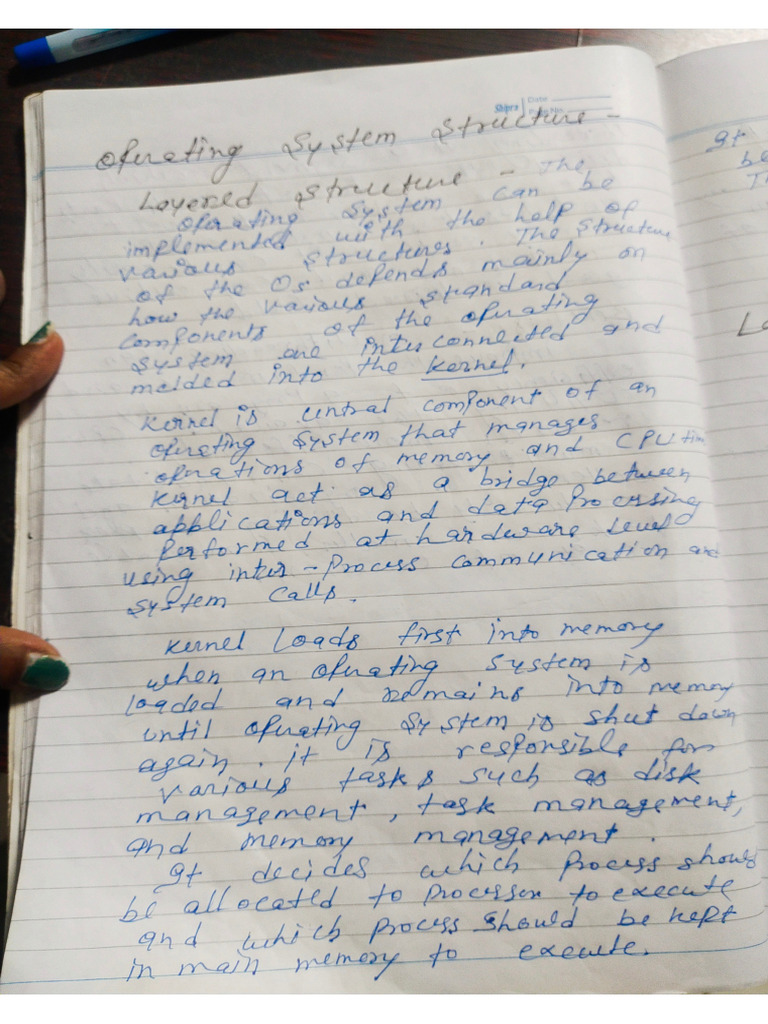 Shipra
Date
Page No.
Operating System Structure -
Layered Structure - The
Operating System can be
implemented with the help of
various structures. The structure
of the Os depends mainly on
how the various standard
components of the operating
system are interconnected and
melded into the kernel.
Kernel is central component of an
operating system that manages
operations of memory and CPU time
kernel act as a bridge between
applications and data Processing
performed at hardware level
using inter-Process communication and
system calls.
Kernel Loads first into memory
when an operating system is
loaded and remains into memory
until operating system is shut down
again. it is responsible for
various tasks such as disk
management, task management,
and memory management.
It decides which process should
be allocated to processor to execute
and which process should be kept
in main memory to execute.
It
be
Th
La